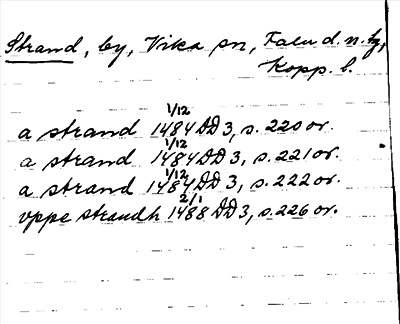 Strand, by, Vika sn, Falu d. n. tg,
Kopp. l.
a strand 1/12 1484 DD 3, s. 220 or.
a strand 1/12 1484 DD 3, s. 221 or.
a strand 1/12 1484 DD 3, s. 222 or.
vppe strandh 2/1 1488 DD 3, s. 226 or.